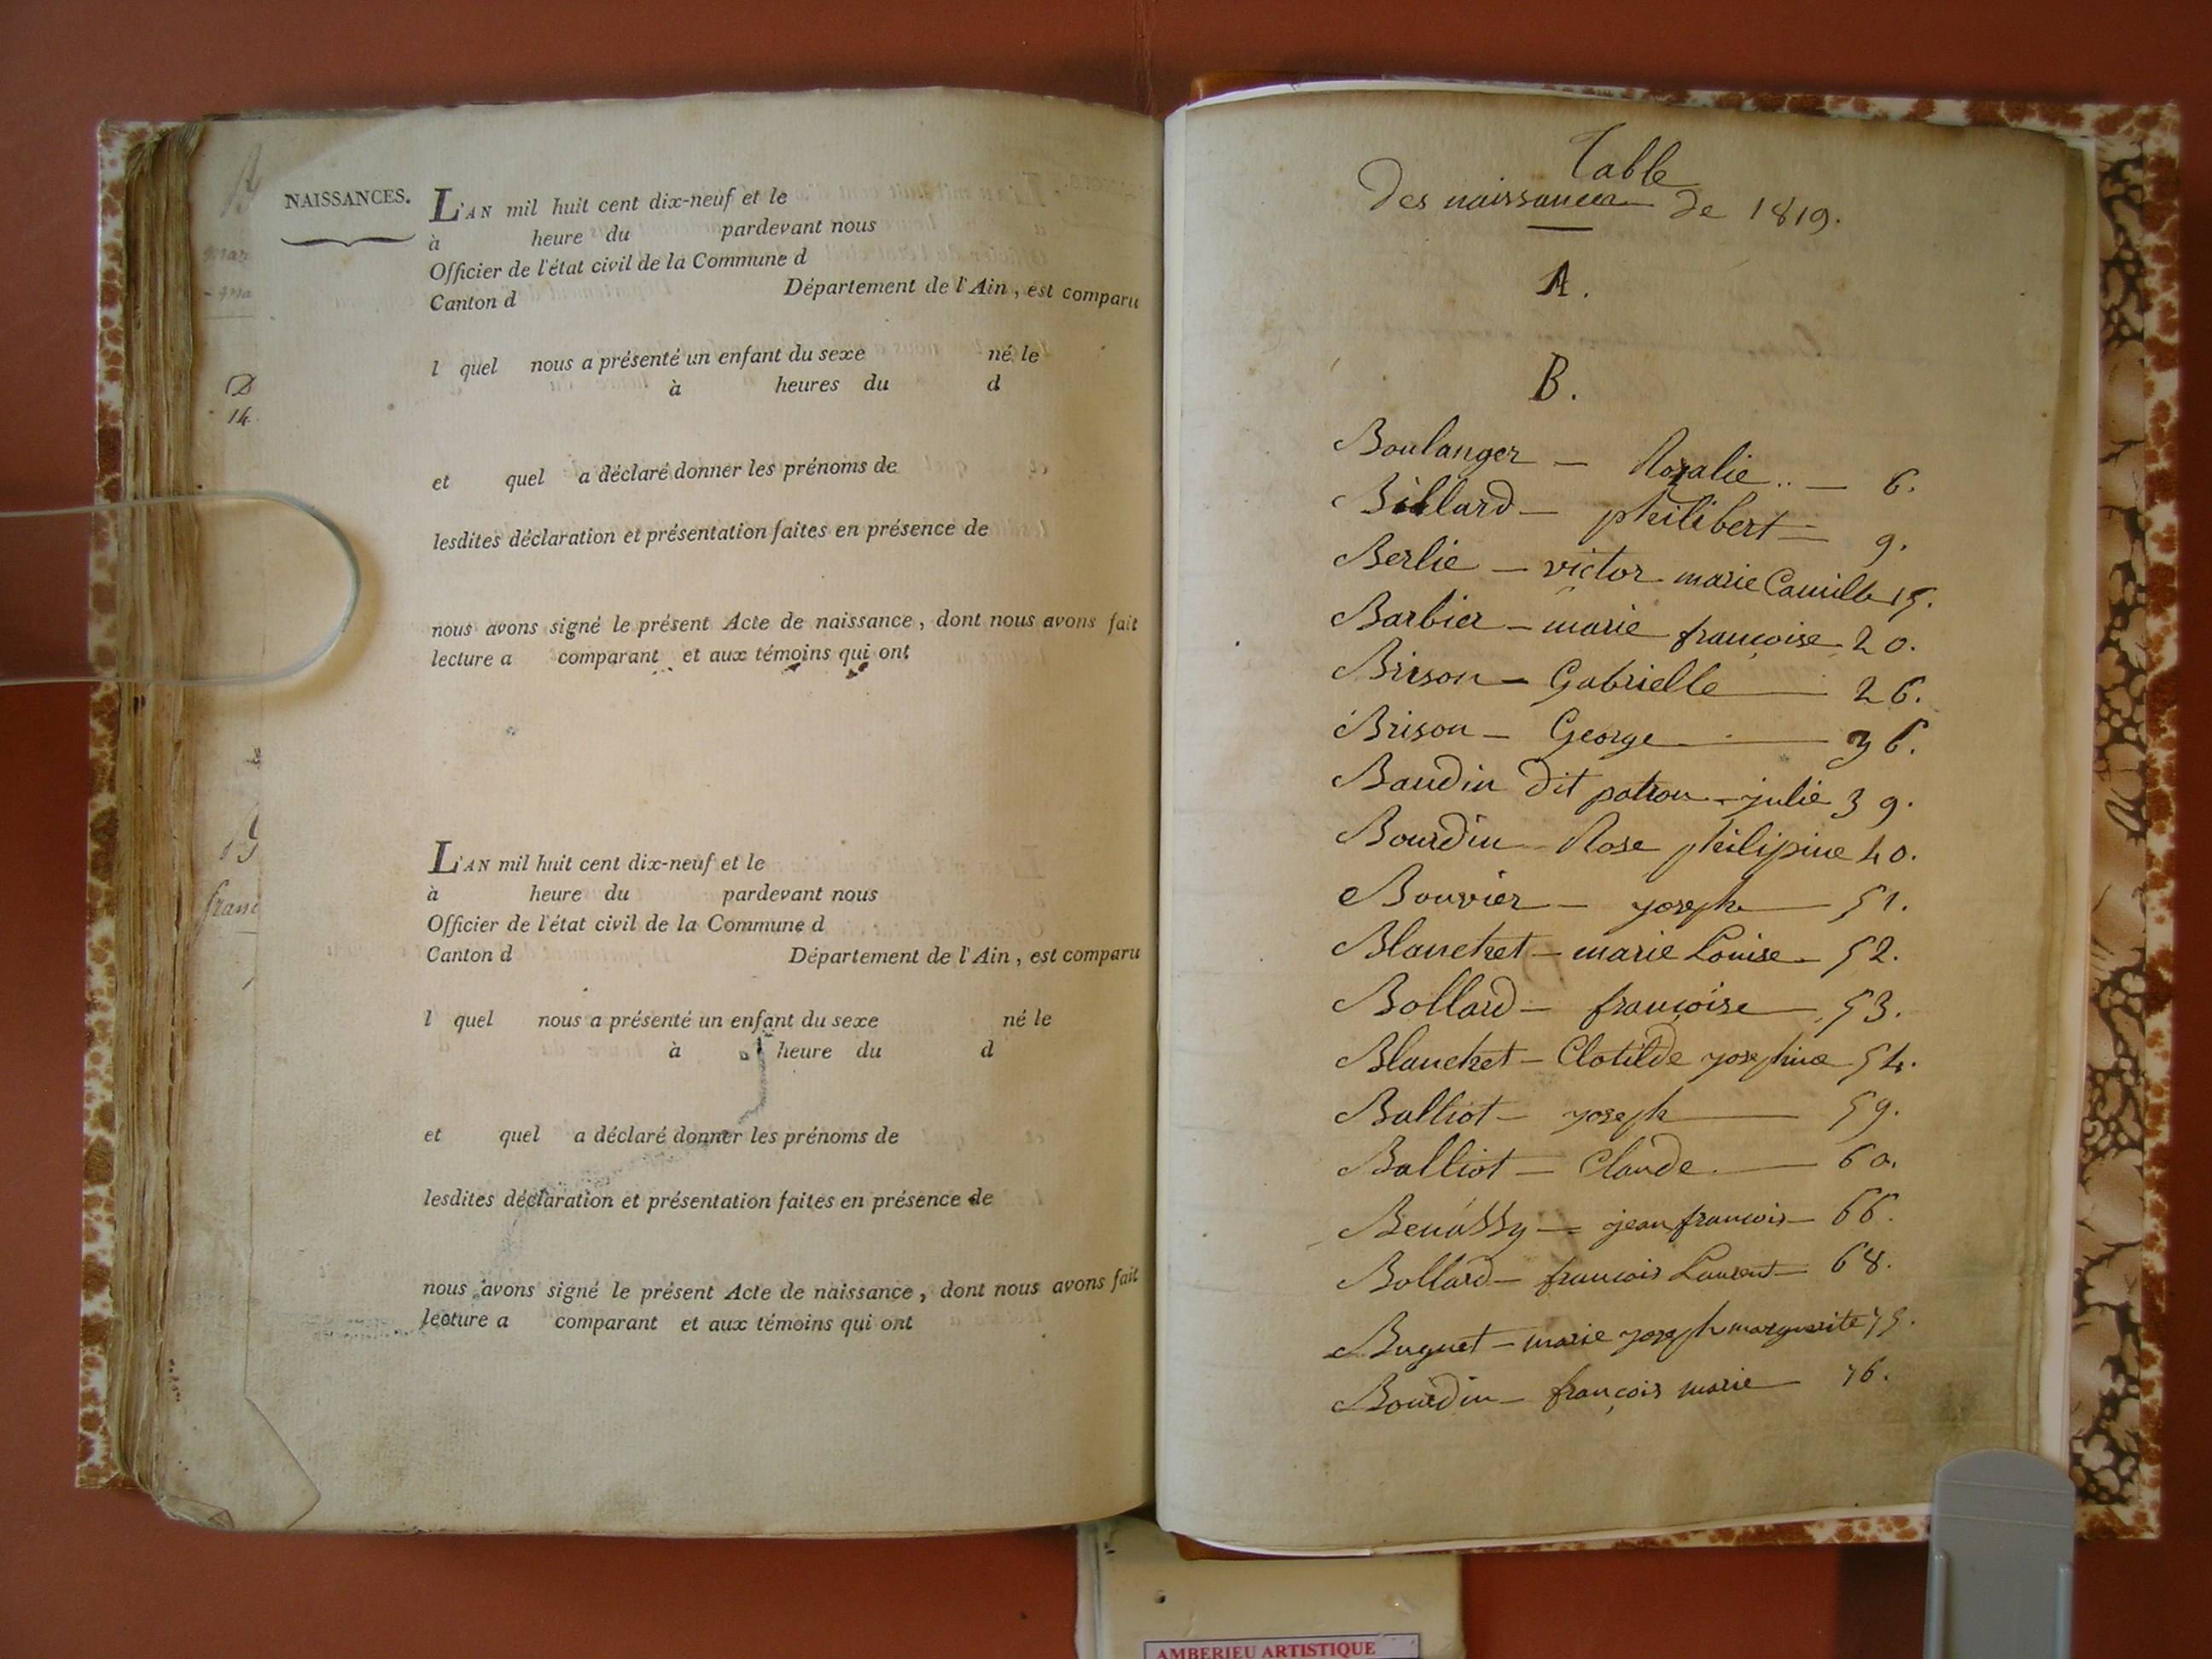 NAISSANCES.
L'AN mil huit cent dix-neuf et le
à heure du pardevant nous
Officier de l'état civil de la Commune d
Canton d Département de l'Ain, est comparu
l quel nous a présenté un enfant du sexe né le
à heures du d
et quel a déclaré donner les prénoms de
lesdites déclaration et présentation faites en présence de
nous avons signé le présent Acte de naissance, dont nous avons fait
lecture a comparant et aux témoins qui ont
L'AN mil huit cent dix-neuf et le
à heure du pardevant nous
Officier de l'état civil de la Commune d
Canton d Département de l'Ain, est comparu
l quel nous a présenté un enfant du sexe né le
à heure du d
et quel a déclaré donner les prénoms de
lesdites déclaration et présentation faites en présence de
nous avons signé le présent Acte de naissance, dont nous avons fait
lecture a comparant et aux témoins qui ont
14
franc
Table
Des naissances de 1819.
A.
B.
Boulanger — Rozalie .. — 6.
Billard — philibert — 9.
Berlie — victor marie Camille 15.
Barbier — marie françoise 20.
Brison — Gabrielle — 26.
Brison — George — 36.
Baudin dit patron — julie 39.
Bourdin Rose philipine 40.
Bouvier — joseph — 51.
Blanchet — marie Louise — 52.
Bollard — françoise — 53.
Blanchet — Clotilde josephine 54.
Balliot — joseph — 59.
Balliot — Claude — 60.
Benassy — jean francois — 66.
Bollard — francois Laurent — 68.
Buguet — marie joseph marguerite 75.
Bourdin — françois marie — 76.
AMBERIEU ARTISTIQUE